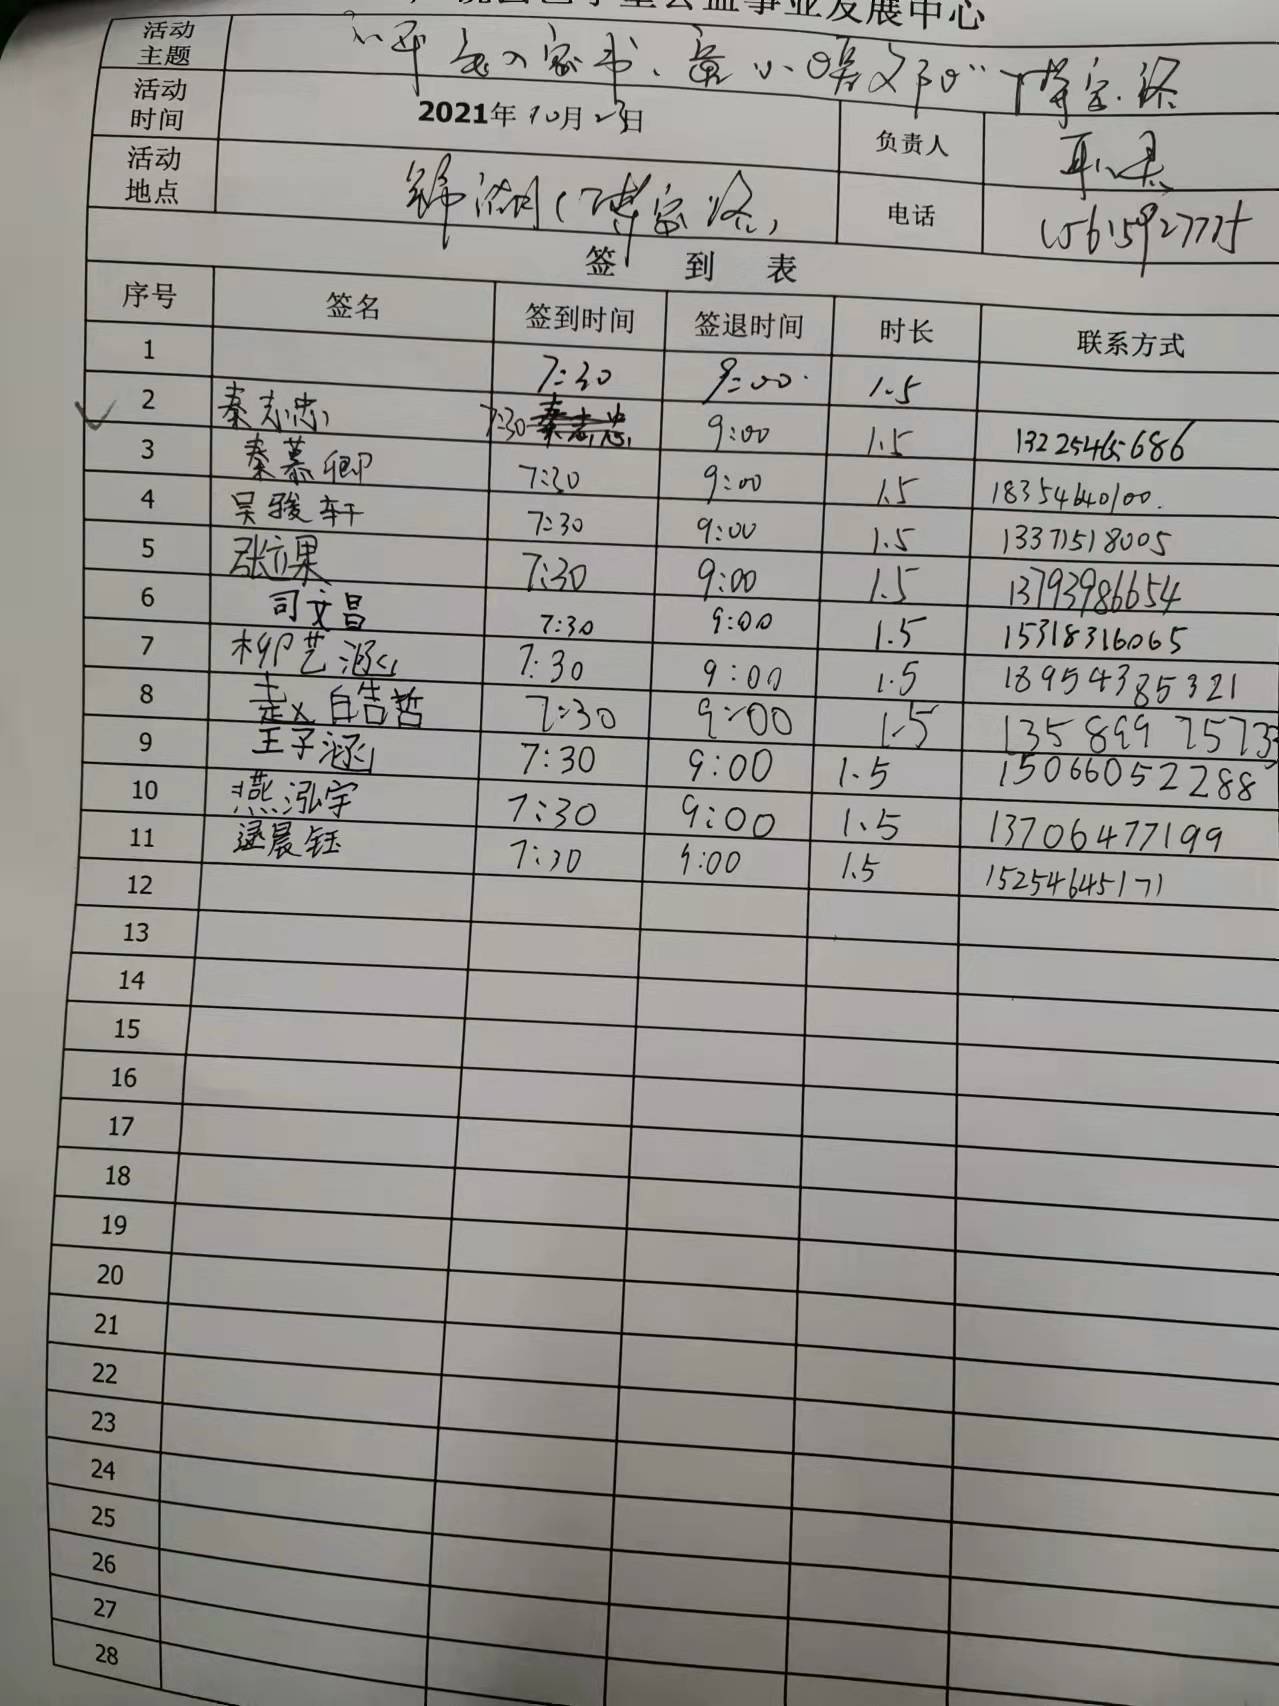 业发展中心
活动主题
活动时间 2021年10月23日 负责人
活动地点 锦湖(博家洛) 电话 15615927775
签到表
序号 签名 签到时间 签退时间 时长 联系方式
1 7:30 9:00 1.5
2 秦志忠 7:30 9:00 1.5 13225465686
3 秦慕卿 7:30 9:00 1.5 18354640100
4 吴骏轩 7:30 9:00 1.5 13371518005
5 张立果 7:30 9:00 1.5 13793986654
6 司文昌 7:30 9:00 1.5 15318316065
7 柳艺涵 7:30 9:00 1.5 18954385321
8 袁皓哲 7:30 9:00 1.5 13589975733
9 王子涵 7:30 9:00 1.5 15066052288
10 燕泓宇 7:30 9:00 1.5 13706477199
11 逯晨钰 7:30 9:00 1.5 15254645171
12
13
14
15
16
17
18
19
20
21
22
23
24
25
26
27
28